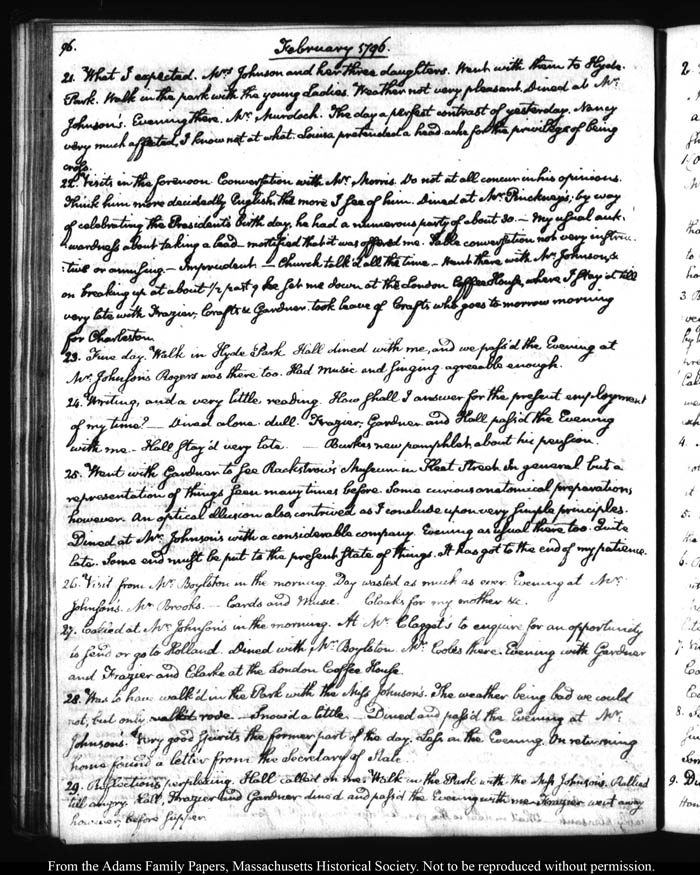 96.
February 1796.
21. What I expected. Mrs Johnson and her three daughters. Went with them to Hyde.
Park. Walk in the park with the young Ladies. Weather not very pleasant. Dined at Mr.
Johnson's. Evening there. Mr. Murdoch. The day a perfect contrast of yesterday. Nancy
very much affected, I know not at what. Louisa pretended a head ache for the privilege of being
cross.
22. Visits in the forenoon. Conversation with Mr. Morris. Do not at all concur in his opinions.
Think him more decidedly English the more I see of him. Dined at Mr. Pinckney's; by way
of celebrating the President's birth day, he had a numerous party of about 30. — My usual auk-
wardness about taking a lead — mortified that it was offered me. Table conversation not very instruc
tive or amusing. — Imprudent — Church talk'd all the time — Went there with Mr. Johnson, &
on breaking up at about 1/2 past 9 he set me down at the London Coffee House, where I stay'd till
very late with Frazier, Crafts & Gardner. took leave of Crafts who goes to morrow morning
for Charleston.
23. Fine day. Walk in Hyde Park Hall dined with me, and we pass'd the Evening at
Mr. Johnson's Rogers was there too. Had music and singing agreeable enough.
24. Writing, and a very little reading. How shall I answer for the present employment
of my time? — Dined alone. dull. Frazier, Gardner and Hall pass'd the Evening
with me. — Hall stay'd very late. — Burke's new pamphlet about his pension.
25. Went with Gardner to see Rackstrow's Museum in Fleet Street. In general but a
representation of things seen many times before. Some curious anatomical preparations,
however. An optical illusion also, contrived as I conclude upon very simple principles.
Dined at Mr. Johnson's with a considerable company. Evening as usual there too. Quite
late. Some end must be put to the present state of things. It has got to the end of my patience.
26. Visit from Mr. Boylston in the morning. Day wasted as much as ever. Evening at Mr.
Johnson's. Mr. Brooks. — Cards and Music. Cloaks for my mother &c.
27. Called at Mr. Johnson's in the morning. At Mr. Clagget's to enquire for an opportunity
to send or go to Holland. Dined with Mr. Boylston. Mr. Coles there. Evening with Gardner
and Frazier and Clarke at the London Coffee House.
28. Was to have walk'd in the Park with the Miss Johnson's. The weather being bad we could
not, but only walk'd rode — Snow'd a little. — Dined and pass'd the Evening at Mr.
Johnson's. Very good spirits the former part of the day. Less in the Evening. On returning
home found a letter from the Secretary of State.
29. Reflections perplexing. Hall called on me. Walk in the Park with the Miss Johnson's. Rallied
till angry. Hall, Frazier and Gardner dined and pass'd the Evening with me. Frazier went away
however, before supper.
From the Adams Family Papers, Massachusetts Historical Society. Not to be reproduced without permission.